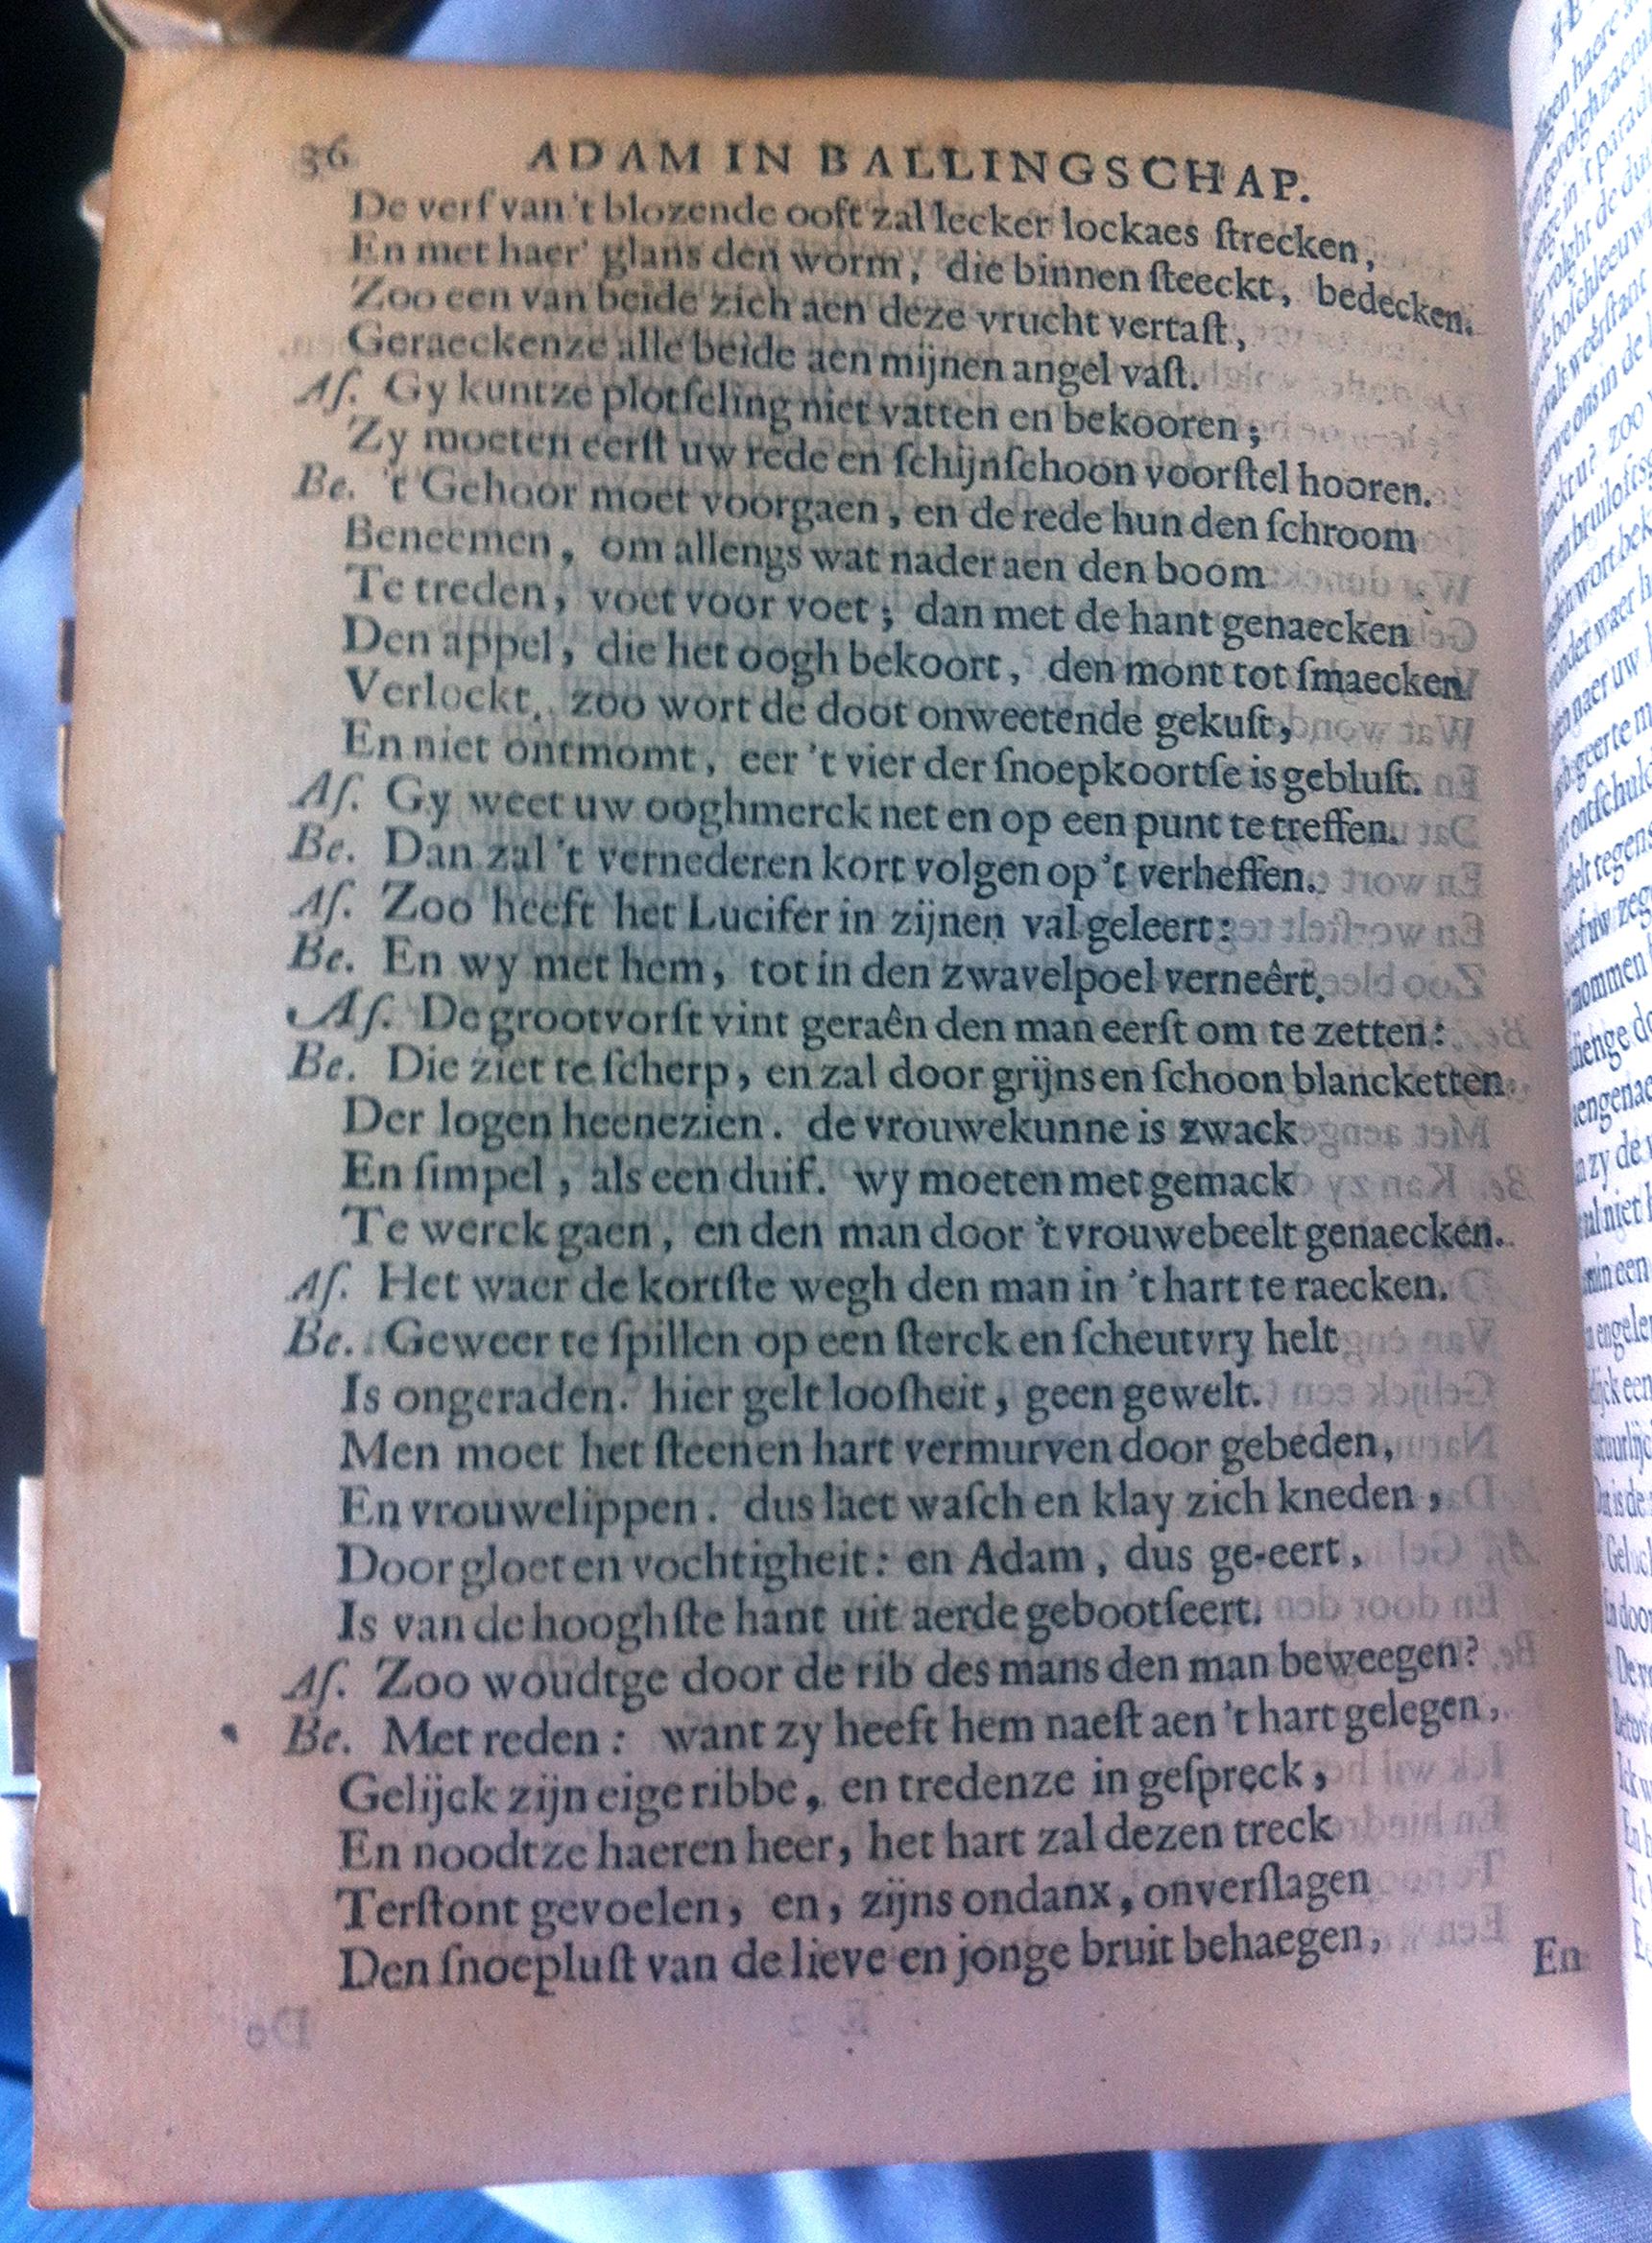 36 ADAM IN BALLINGSCHAP.
De verf van 't blozende ooft zal lecker lockaes ſtrecken,
En met haer' glans den worm, die binnen ſteeckt, bedecken.
Zoo een van beide zich aen deze vrucht vertaſt,
Geraeckenze alle beide aen mijnen angel vaſt.
Aſ. Gy kuntze plotſeling niet vatten en bekooren;
Zy moeten eerſt uw rede en ſchijnſchoon voorſtel hooren.
Be. 't Gehoor moet voorgaen, en de rede hun den ſchroom
Beneemen, om allengs wat nader aen den boom
Te treden, voet voor voet; dan met de hant genaecken
Den appel, die het oogh bekoort, den mont tot ſmaecken
Verlockt. zoo wort de doot onweetende gekuſt,
En niet ontmomt, eer 't vier der ſnoepkoortſe is gebluſt.
Aſ. Gy weet uw ooghmerck net en op een punt te treffen.
Be. Dan zal 't vernederen kort volgen op 't verheffen.
Aſ. Zoo heeft het Lucifer in zijnen val geleert:
Be. En wy met hem, tot in den zwavelpoel verneêrt.
Aſ. De grootvorſt vint geraên den man eerſt om te zetten:
Be. Die ziet te ſcherp, en zal door grijns en ſchoon blancketten
Der logen heenezien. de vrouwekunne is zwack
En ſimpel, als een duif. wy moeten met gemack
Te werck gaen, en den man door 't vrouwebeelt genaecken.
Aſ. Het waer de kortſte wegh den man in 't hart te raecken.
Be. Geweer te ſpillen op een ſterck en ſcheutvry helt
Is ongeraden. hier gelt looſheit, geen gewelt.
Men moet het ſteenen hart vermurven door gebeden,
En vrouwelippen. dus laet waſch en klay zich kneden,
Door gloet en vochtigheit: en Adam, dus ge-eert,
Is van de hooghſte hant uit aerde gebootſeert.
Aſ. Zoo woudtge door de rib des mans den man beweegen?
Be. Met reden: want zy heeft hem naeſt aen 't hart gelegen,
Gelijck zijn eige ribbe, en tredenze in geſpreck,
En noodtze haeren heer, het hart zal dezen treck
Terſtont gevoelen, en, zijns ondanx, onverſlagen
Den ſnoepluſt van de lieve en jonge bruit behaegen,
En